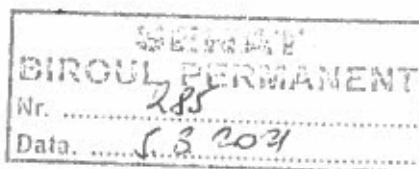 SENAT
BIROUL PERMANENT
Nr. ........ 285
Data. ........ 5.3.2021